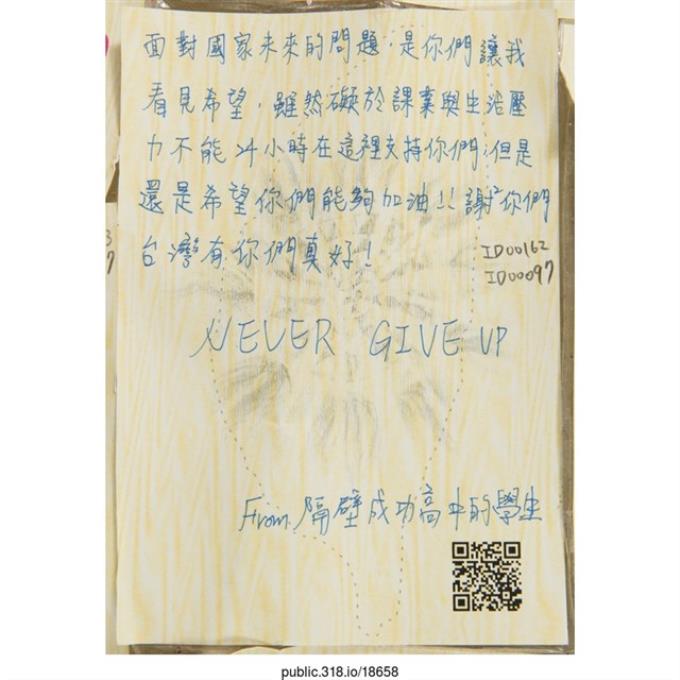 面對國家未來的問題，是你們讓我
看見希望，雖然礙於課業與生活壓
力不能24小時在這裡支持你們，但是
還是希望你們能夠加油!!謝²你們
台灣有你們真好!
ID00162
ID00097
NEVER GIVE UP
From 隔壁成功高中的學生
public.318.io/18658